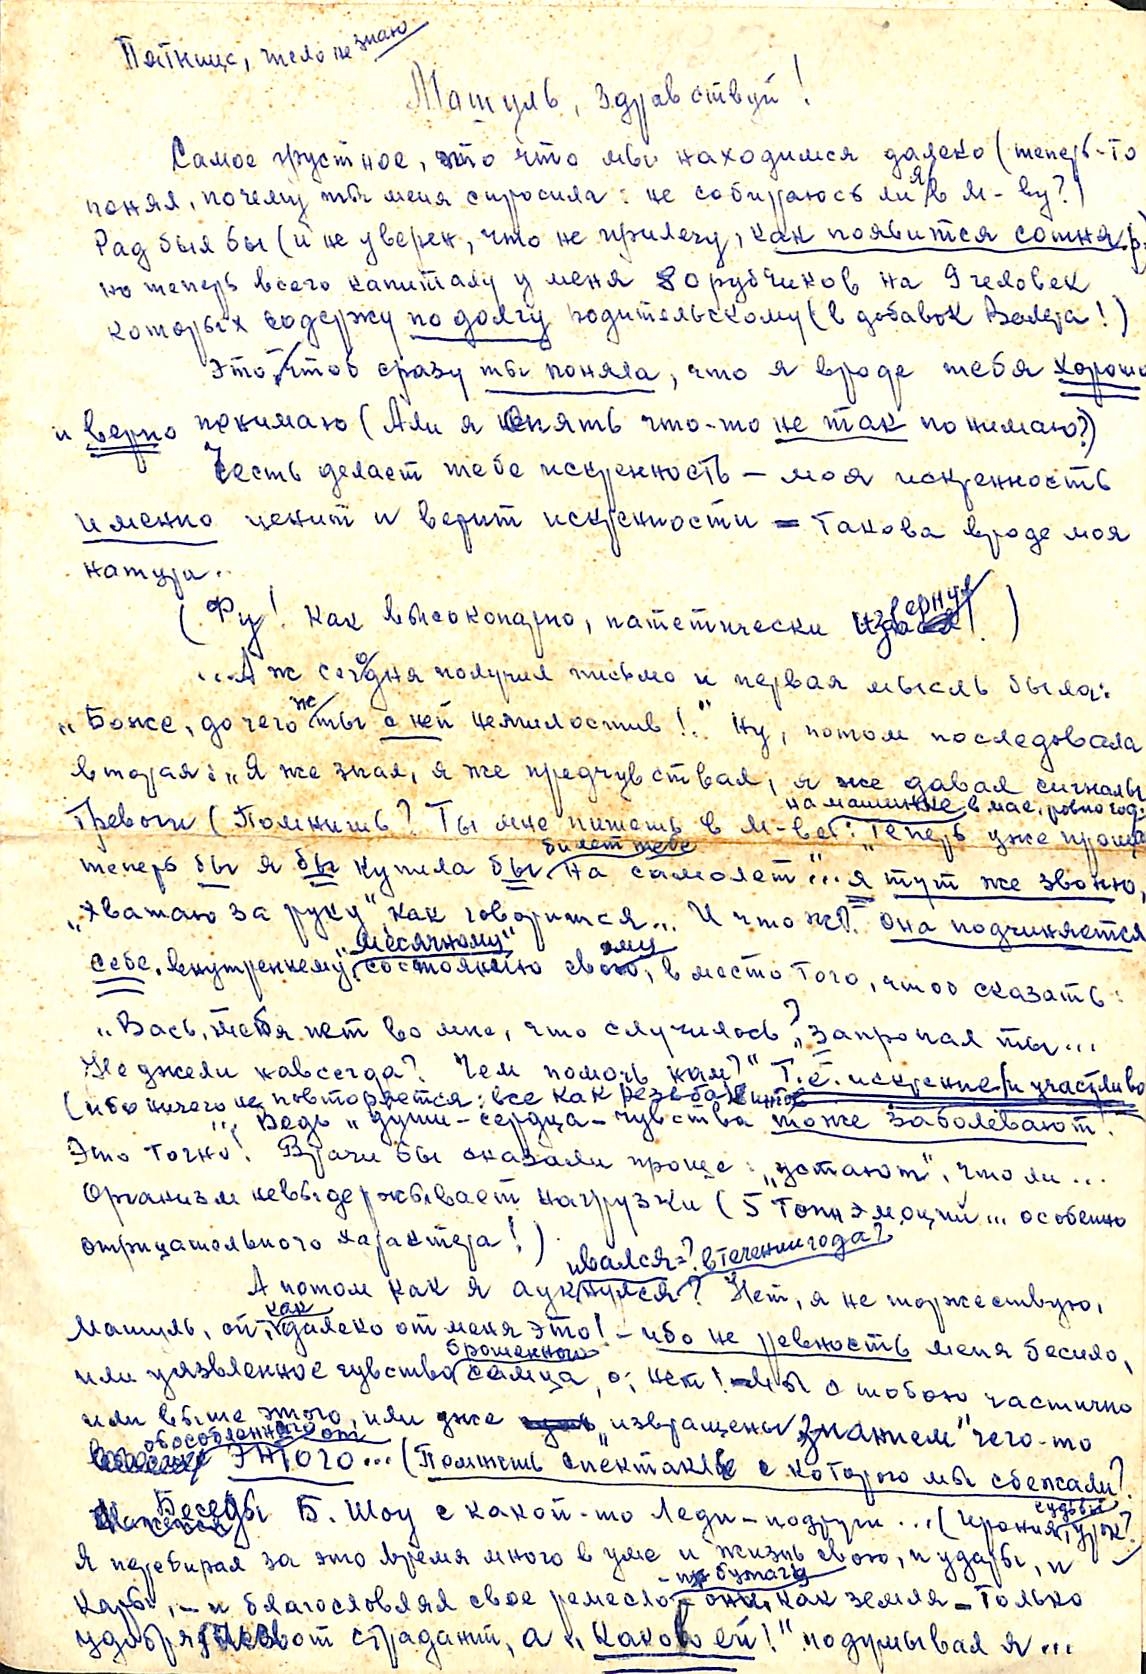 Пятница, число не знаю
Машуль, здравствуй!
Самое грустное, это что мы находимся далеко (теперь-то
понял, почему ты меня спросила: не собираюсь ли я в М-ву?)
Рад был бы (и не уверен, что не прилечу, как появится сотня р.)
но теперь всего капиталу у меня 80 рубчиков на 9 человек
которых содержу по долгу родительскому (в добавок Валера!)
Это, чтоб сразу ты поняла, что я вроде тебя хорошо
и верно понимаю (Али я опять что-то не так понимаю?)
Честь делает тебе искренность – моя искренность
именно ценит и верит искренности – такова вроде моя
натура..
(Фу! Как высокопарно, патетически извернул!)
...А ж сегодня получил письмо и первая мысль была:
„Боже, до чего ж ты с ней немилостив!." Ну, потом последовала
вторая: „Я же знал, я же предчувствовал, я же давал сигналы
тревоги (Помнишь? Ты мне пишешь в М-ве на машинке в мае, ровно год: „Теперь уже проще
теперь бы я бы купила бы билет тебе на самолет"... я тут же звоню,
„хватаю за руку" как говорится... И что ж? – она подчиняется
себе, внутреннему, „месячному" состоянию своему, вместо того, чтоб сказать:
„Вась, тебя нет во мне, что случилось? Запропал ты...
Неужели навсегда? Чем помочь нам?" Т.е. искренне и участливо
(ибо ничего не повторяется: все как резьба винтов
... Ведь „души-сердца-чувства тоже заболевают!
Это точно! Врачи бы сказали проще: „устают", что ли...
Организм невыдерживает нагрузки (5 тонн эмоций... особенно
отрицательного характера!)
А потом как я аукнулся? ивался=? в течении года? Нет, я не торжествую,
Машуль, ой, как далеко от меня это! – ибо не ревность меня бесила,
или уязвленное чувство брошенного самца, о, нет! – Мы с тобою частично
или выше этого, или уже извращены „знанием" чего-то
обособленного от ЭНТОГО... (Помнишь спектакль с которого мы сбежали?
Беседы Б. Шоу с какой-то Леди-подруги... (Ирония судьбы, урок?
Я перебирал за это время много в уме и жизнь свою, и удары, и
кары, – и благословлял свое ремесло – бумага – она, как земля – только
удобряет от страданий, а „Каково ей!" подумывал я...